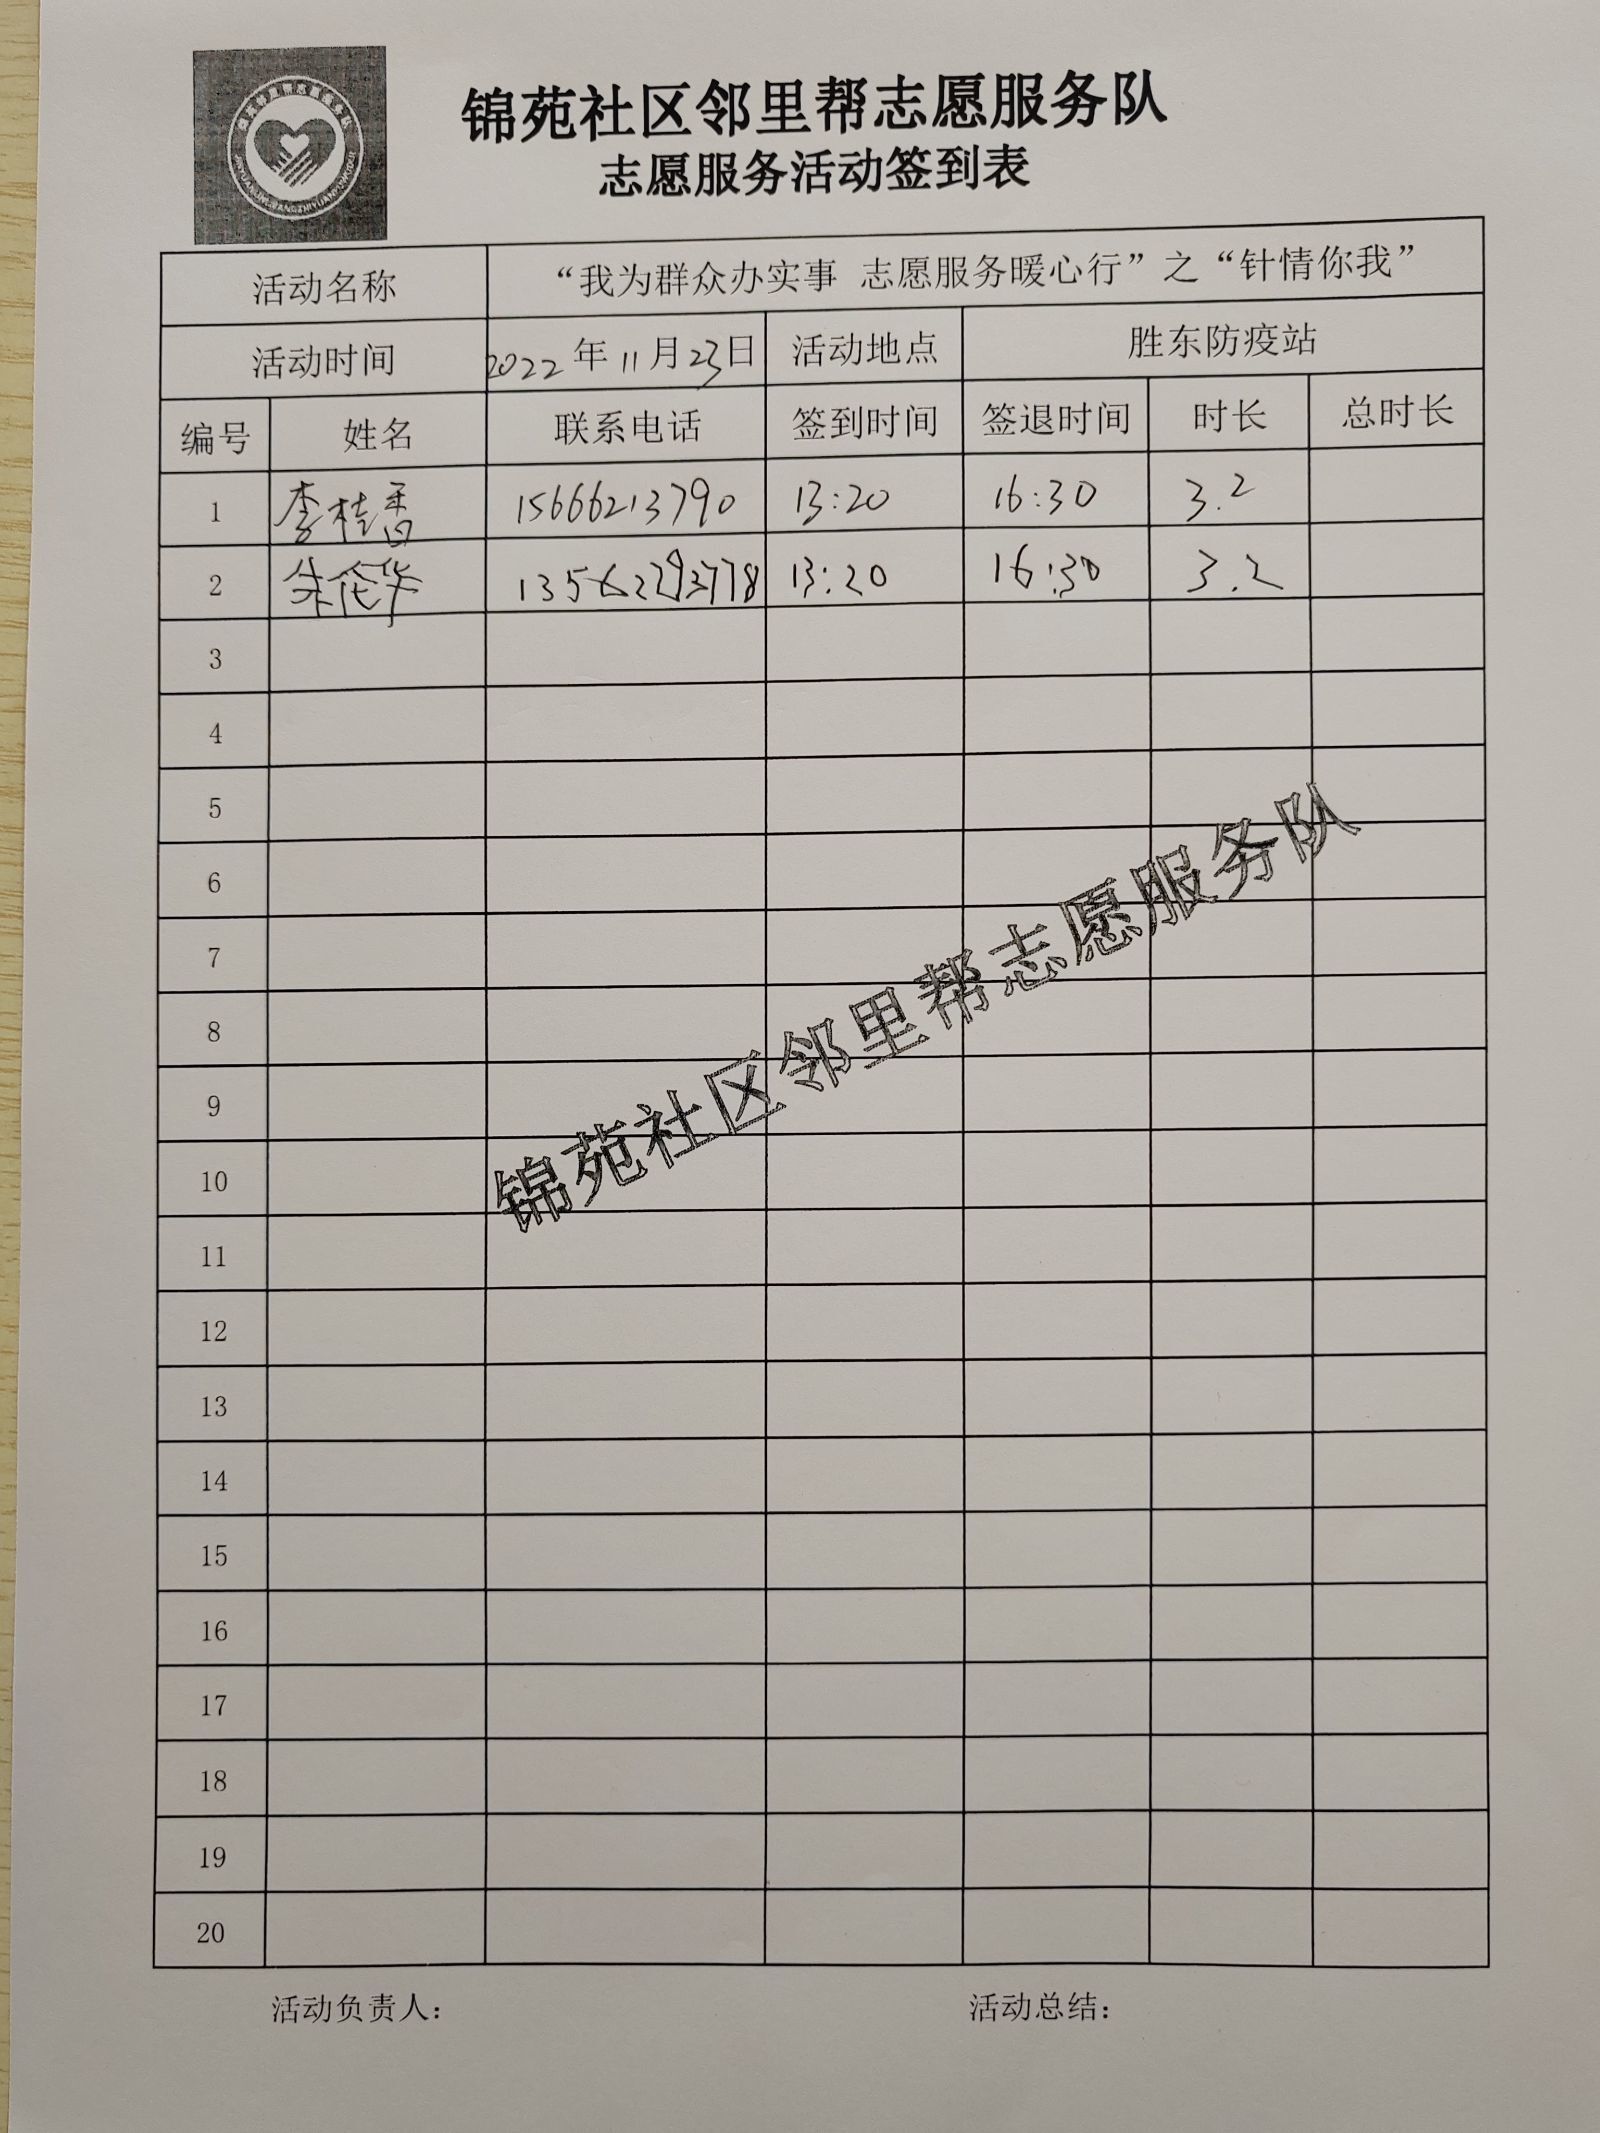 锦苑社区邻里帮志愿服务队
志愿服务活动签到表
活动名称 “我为群众办实事 志愿服务暖心行”之“针情你我”
活动时间 2022年11月23日 活动地点 胜东防疫站
编号 姓名 联系电话 签到时间 签退时间 时长 总时长
1 李桂香 15666213790 13:20 16:30 3.2
2 朱伦华 13:20 16:30 3.2
3
4
5
6
7
8
9
10
11
12
13
14
15
16
17
18
19
20
锦苑社区邻里帮志愿服务队
活动负责人: 活动总结: